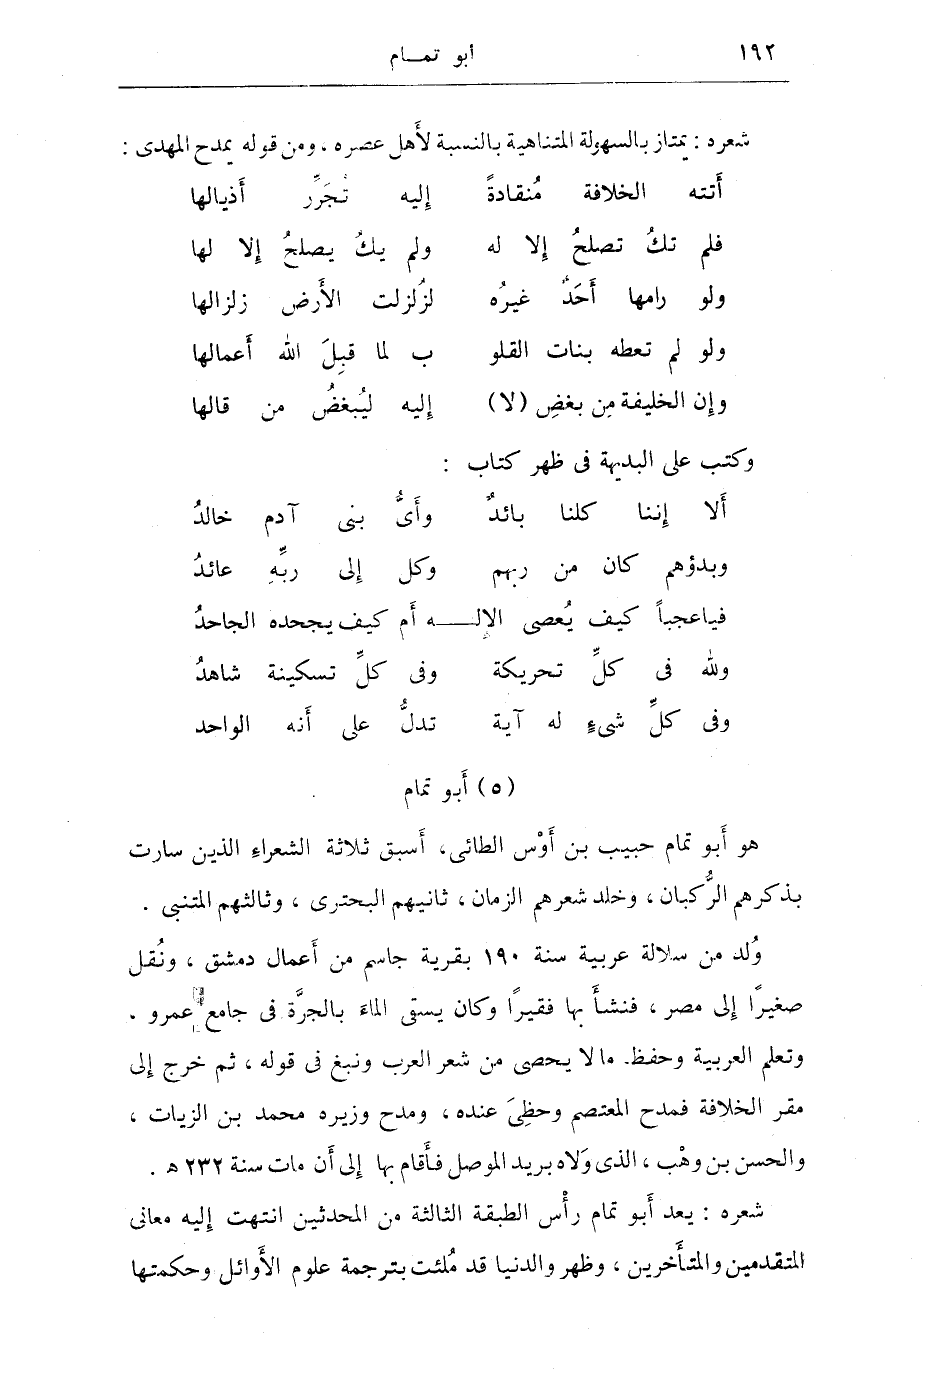 ١٩٢ أبو تمـام
شعره : يمتاز بالسهولة المتناهية بالنسبة لأهل عصره ، ومن قوله يمدح المهدى :
أتته الخلافة مُنقادةً إليه تُجَرِّر أذيالها
فلم تكُ تصلحُ إلا له ولم يكُ يصلحُ إلا لها
ولو رامها أَحَدٌ غيرُه لزُلزلت الأرض زلزالها
ولو لم تعطه بنات القلو ب لما قبِلَ الله أعمالها
وإن الخليفة مِن بغضِ (لا) إليه ليُبغضُ من قالها
وكتب على البديهة فى ظهر كتاب :
ألا إننا كلنا بائدٌ وأىُّ بنى آدم خالدُ
وبدؤهم كان من ربهم وكل إلى ربِّهِ عائدُ
فياعجباً كيف يُعصى الإلـــه أم كيف يجحده الجاحدُ
ولله فى كلِّ تحريكة وفى كلِّ تسكينة شاهدُ
وفى كلِّ شىءٍ له آية تدلُّ على أنه الواحد
(٥) أبو تمام
هو أبو تمام حبيب بن أوْس الطائى، أسبق ثلاثة الشعراء الذين سارت
بذكرهم الرُّكبان ، وخلد شعرهم الزمان ، ثانيهم البحترى ، وثالثهم المتنبى .
وُلد من سلالة عربية سنة ١٩٠ بقرية جاسم من أعمال دمشق ، ونُقل
صغيرًا إلى مصر ، فنشأ بها فقيرًا وكان يستقى الماءَ بالجرَّة فى جامع عمرو .
وتعلم العربية وحفظ. مالا يحصى من شعر العرب ونبغ فى قوله ، ثم خرج إلى
مقر الخلافة فمدح المعتصم وحظِىَ عنده ، ومدح وزيره محمد بن الزيات ،
والحسن بن وهْب ، الذى وَلاه بريد الموصل فأقام بها إلى أن مات سنة ٢٣٢ ھ .
شعره : يعد أبو تمام رأْس الطبقة الثالثة من المحدثين انتهت إليه معانى
المتقدمين والمتأخرين ، وظهر والدنيا قد مُلئت بترجمة علوم الأوائل وحكمتها